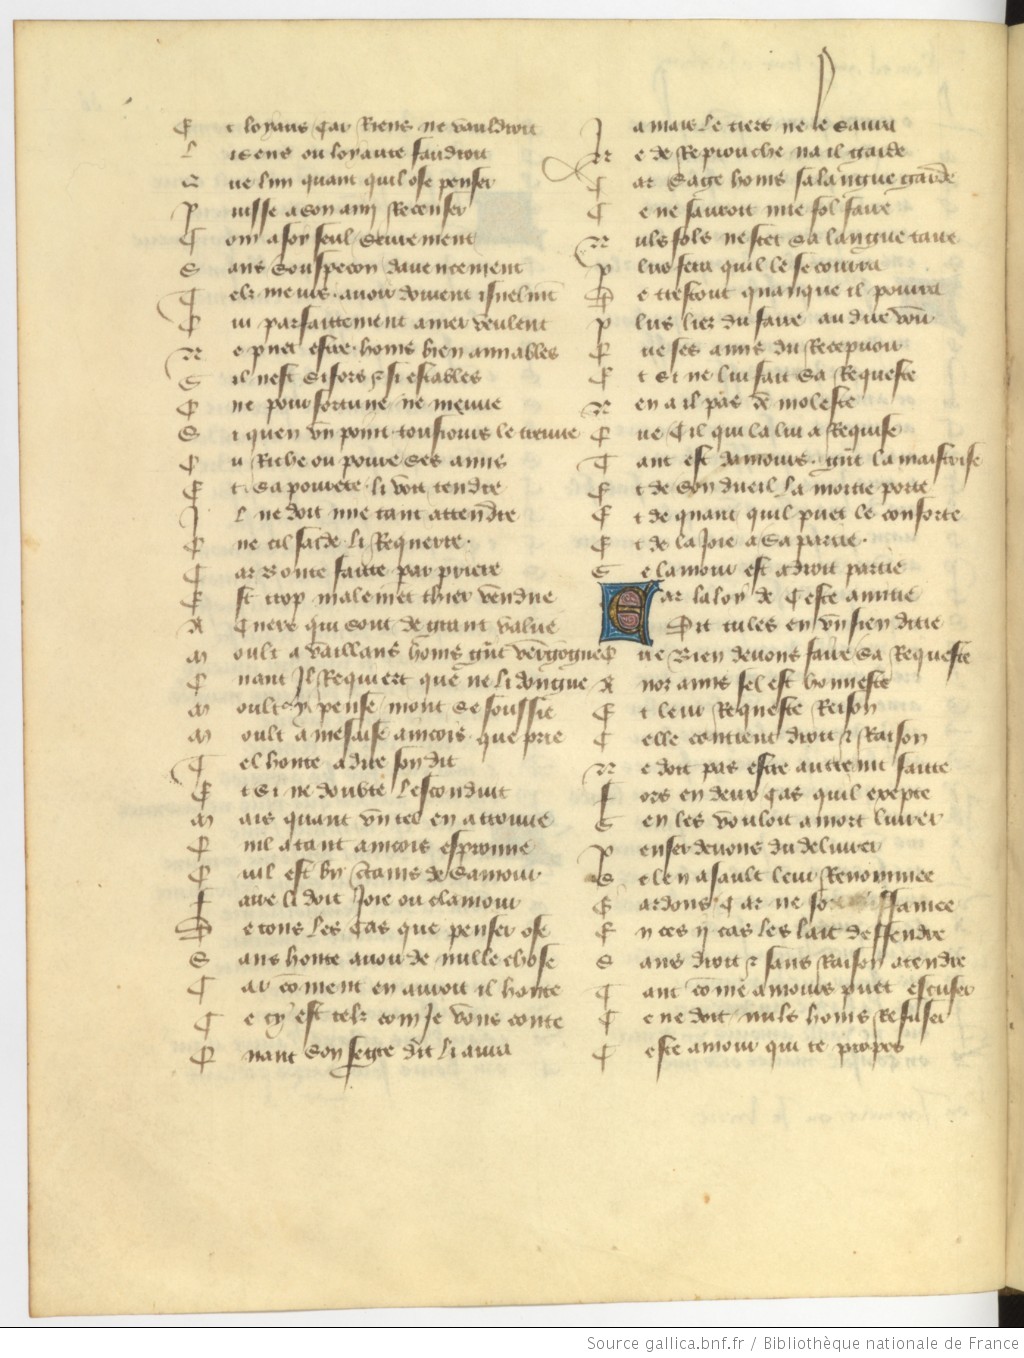 Et loyaus car Riens ne vauldroit
Li sens ou loyaute faudroit
Que lun quant quil ose penser
Puisse a son amy Recenser
Com a soy seul seurement
Sans souspecon dauencement
Telz meurs auoir doiuent isnelment
Qui parfaittement amer veulent
Ne puet estre homs bien amiables
Sil nest si fors et si estables
Que pour fortune ne meuue
Si quen vn point tousiours le treuue
Ou Riche ou poure ses amis
Et sa pourete li voit tendre
Il ne doit mie tant attendre
Que cil saide li Requerre
Car Bonte faitte par priere
Est trop malement chier vendue
A Cuers qui sont de grant value
Moult a vaillans homs grant vergogne
Quant Il Requiert que ne li dongne
Moult y pense moult se soussie
Moult a mesaise aincois que prie
Tel honte a dire son dit
Et si ne doubte lescondit
Mais quant vn tel en a trouue
Quil a tant aincois esprouue
Quil est bien certains de samour
Faire li doit Joie ou clamour
De tous les Cas que penser ose
Sans honte auoir de nulle chose
Car coment en auroit il honte
Ce cy est telz com Je vous conte
Quant son segre dit li aura
Jamais le tiers ne le saura
Ne de Reprouche na il garde
Car sage homs sa langue garde
Ce ne sauroit mie fol faire
Nuls fols ne scet sa langue taire
Plus fera quil le secourra
De trestout quanque il pourra
Plus liez du faire au dire voir
Que ses amis du Receuoir
Et si ne lui fait sa Requeste
Nen a il pas de moleste
Que Cil qui la lui a Requise
Tant est damours grant la maistrise
Et de son dueil la moitie porte
Et de quant quil puet le conforte
Et de la Joie a sa partie
Se lamour est a droit partie
Car la loy de Ceste amitie
Dit tules en vn sien ditie
Que Bien deuons faire sa Requeste
A nos amis sel est honneste
Et leur Requeste Reison
Celle contient droit et Raison
Ne doit pas estre autrement faitte
Fors en deux Cas quil exepte
Sen les vouloit a mort liurer
Penser deuons du deliurer
Se len assault leur Renommee
Gardons Car ne soit
En ces ij cas les lait deffendre
Sans droit et sans Raison atendre
Tant come amours puet escuser
Ce ne doit nuls homs Refuser
Ceste amour qui te propos